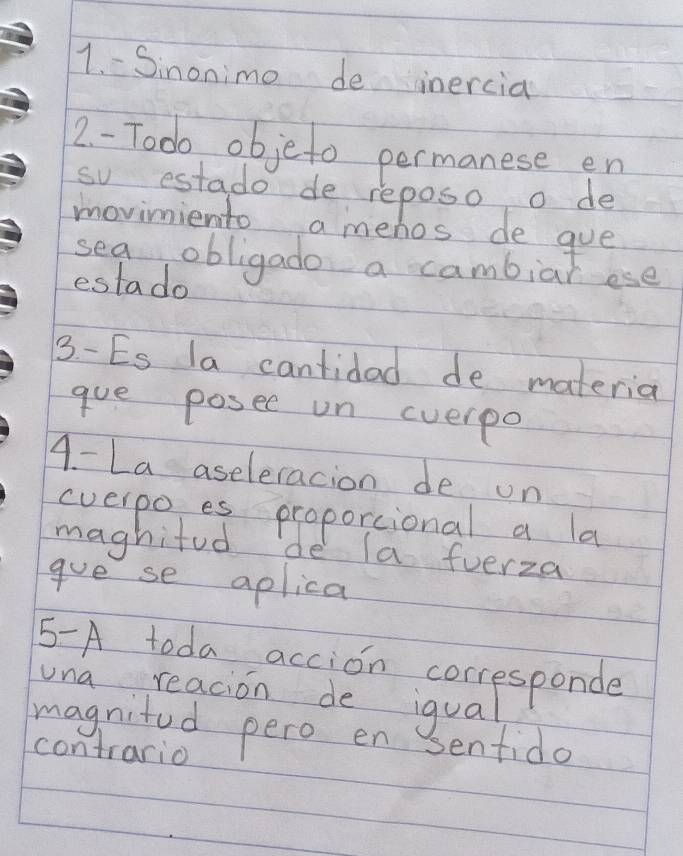 1.- Sinonimo de inercia
2.- Todo objeto permanese en
su estado de reposo o de
movimiento a menos de que
sea obligado a cambiar ese
estado
3.- Es la cantidad de materia
que posee un cuerpo
4.- La aseleracion de un
cuerpo es proporcional a la
maghitud de la fuerza
que se aplica
5- A toda acción corresponde
una reación de igual
magnitud pero en sentido
contrario